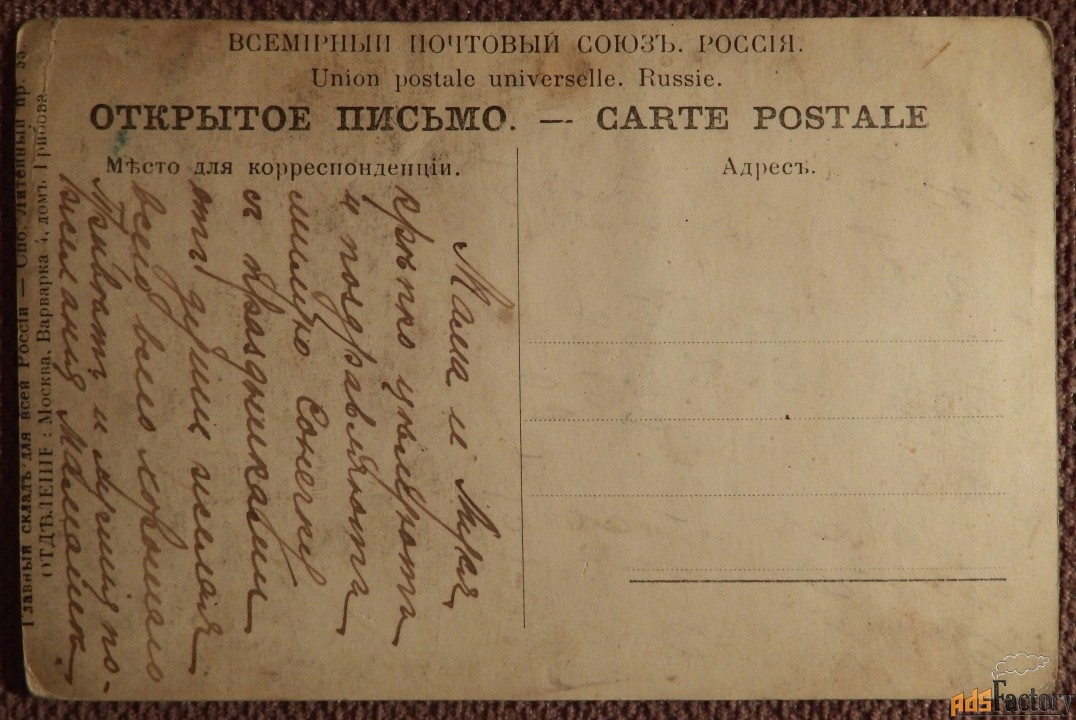 ВСЕМІРНЫЙ ПОЧТОВЫЙ СОЮЗЪ. РОССІЯ.
Union postale universelle. Russie.
ОТКРЫТОЕ ПИСЬМО. — CARTE POSTALE
Мѣсто для корреспонденціи.
Адресъ.
Мама и Муся
крѣпко цѣлуютъ
и поздравляютъ
милую Сонечку
съ праздниками
отъ души желая
всего всего хорошаго
Привѣтъ и лучшія по-
желанія
Главный складъ для всей Россіи — Спб. Литейный пр. 55
ОТДѢЛЕНІЕ: Москва, Варварка 4, домъ Грибова
AdsFactory